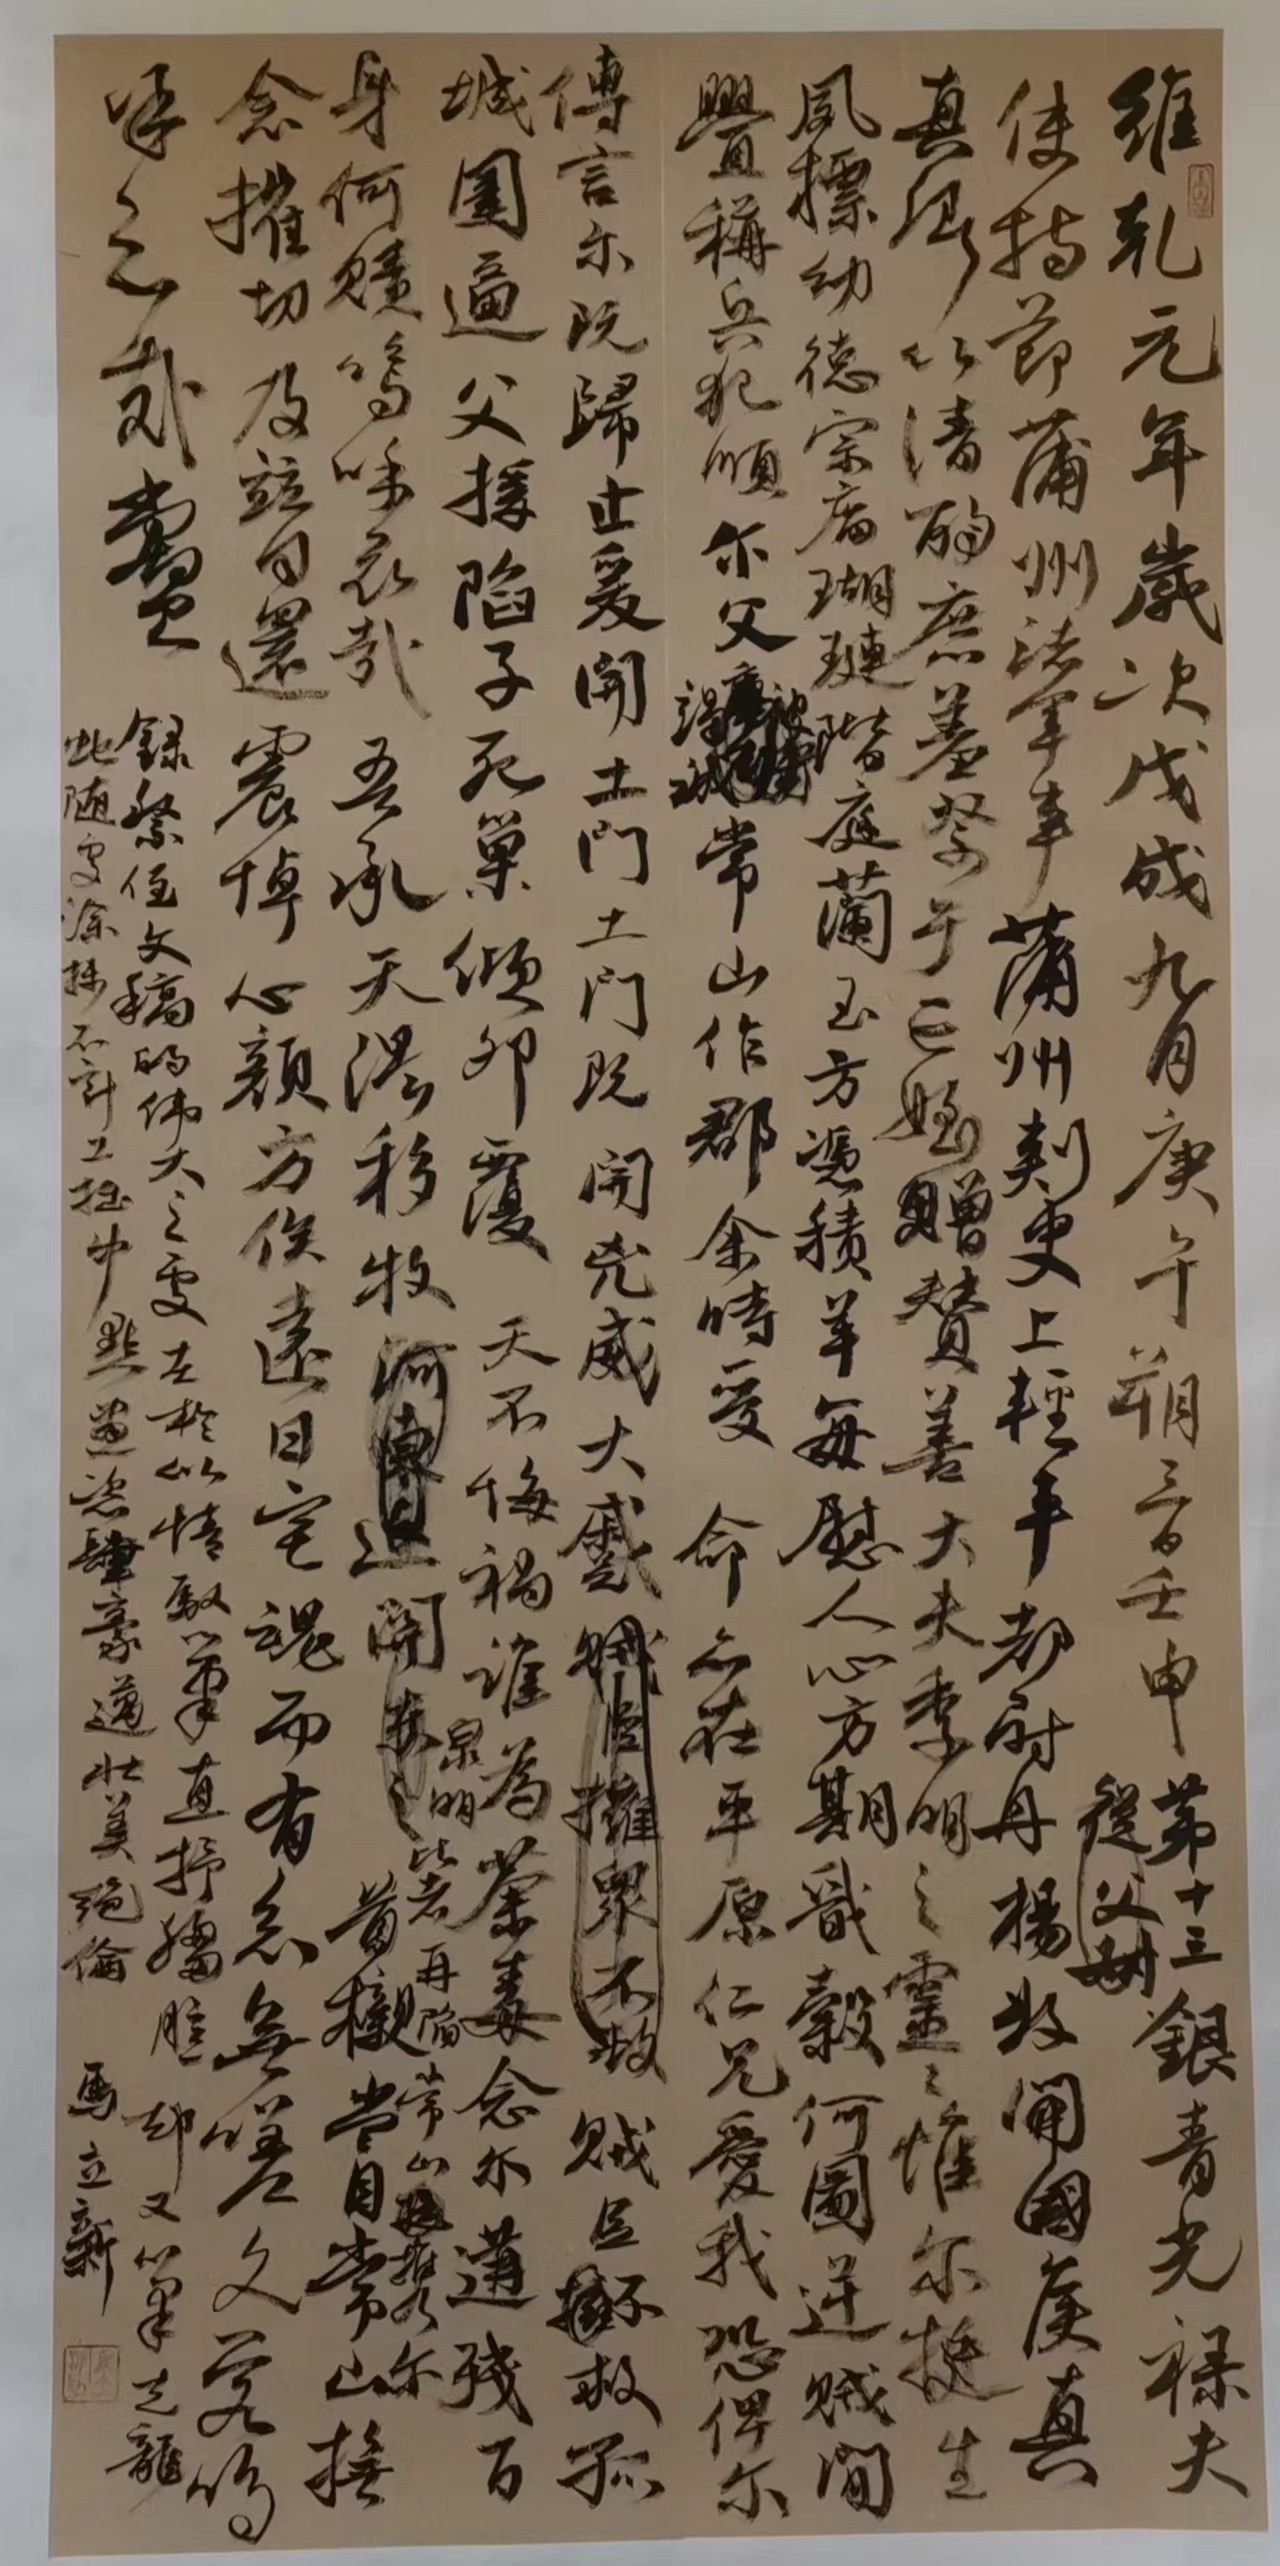 維乾元年歲次戊戌九月庚午朔三日壬申第十三從父叔銀青光禄夫
使持節蒲州諸軍事蒲州刺史上輕車都尉丹楊縣開國侯真
真卿以清酌庶羞祭于亡姪贈贊善大夫季明之靈惟爾挺生
夙標幼德宗廟瑚璉階庭蘭玉方憑積羊每慰人心方期戩穀何圖逆賊閒
釁稱兵犯順尔父竭誠常山作郡余時受命亦在平原仁兄愛我恐俾尔
傳言尔既歸止爰開土門土門既開兇威大蹙賊臣擁眾不救賊臣不救孤
城圍逼父擒陷子死巢傾卵覆天不悔禍誰為荼毒念尔遘殘百
身何贖嗚呼哀哉吾承天澤移牧河東近開亦之泉明比者再陷常山攜尔
首櫬常自常山撫
念摧切及茲日還震悼心顏方俟遠日宅魂而有知無嗟久客嗚
呼哀哉尚饗
録祭侄文稿的偉大之處在於以情馭筆直抒胸臆却又筆走龍
蛇随處塗抹不計工拙中點畫恣肆豪邁壯美絕倫 馬立新